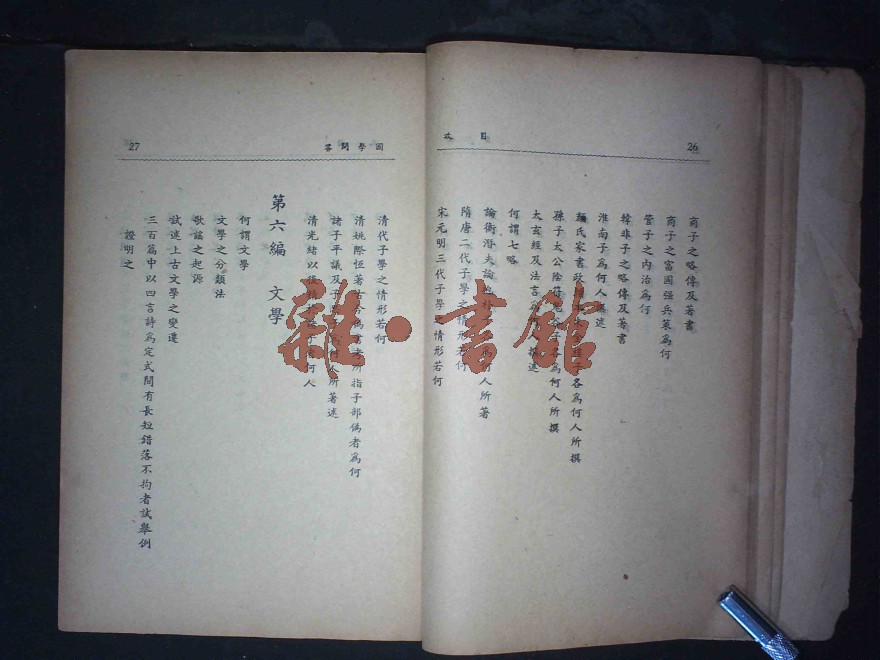 26
目次
商子之略傳及著書
商子之富國强兵策爲何
管子之內治爲何
韓非子之略傳及著書
淮南子爲何人 述
顏氏家書政 各爲何人所撰
孫子太公陰符 各爲何人所撰
太玄經及法言 撰述
何謂七略
論衡潛夫論 何人所著
隋唐二代子學之情形若何
宋元明三代子學之情形若何
27
國學問答
清代子學之情形若何
清姚際恆著古今僞書考所指子部僞者爲何
諸子平議及子 人所著述
清光緒以後 何人
第六編 文學
何謂文學
文學之分類法
歌謠之起源
試述上古文學之變遷
三百篇中以四言詩爲定式間有長短錯落不拘者試舉例
證明之
雜·書館